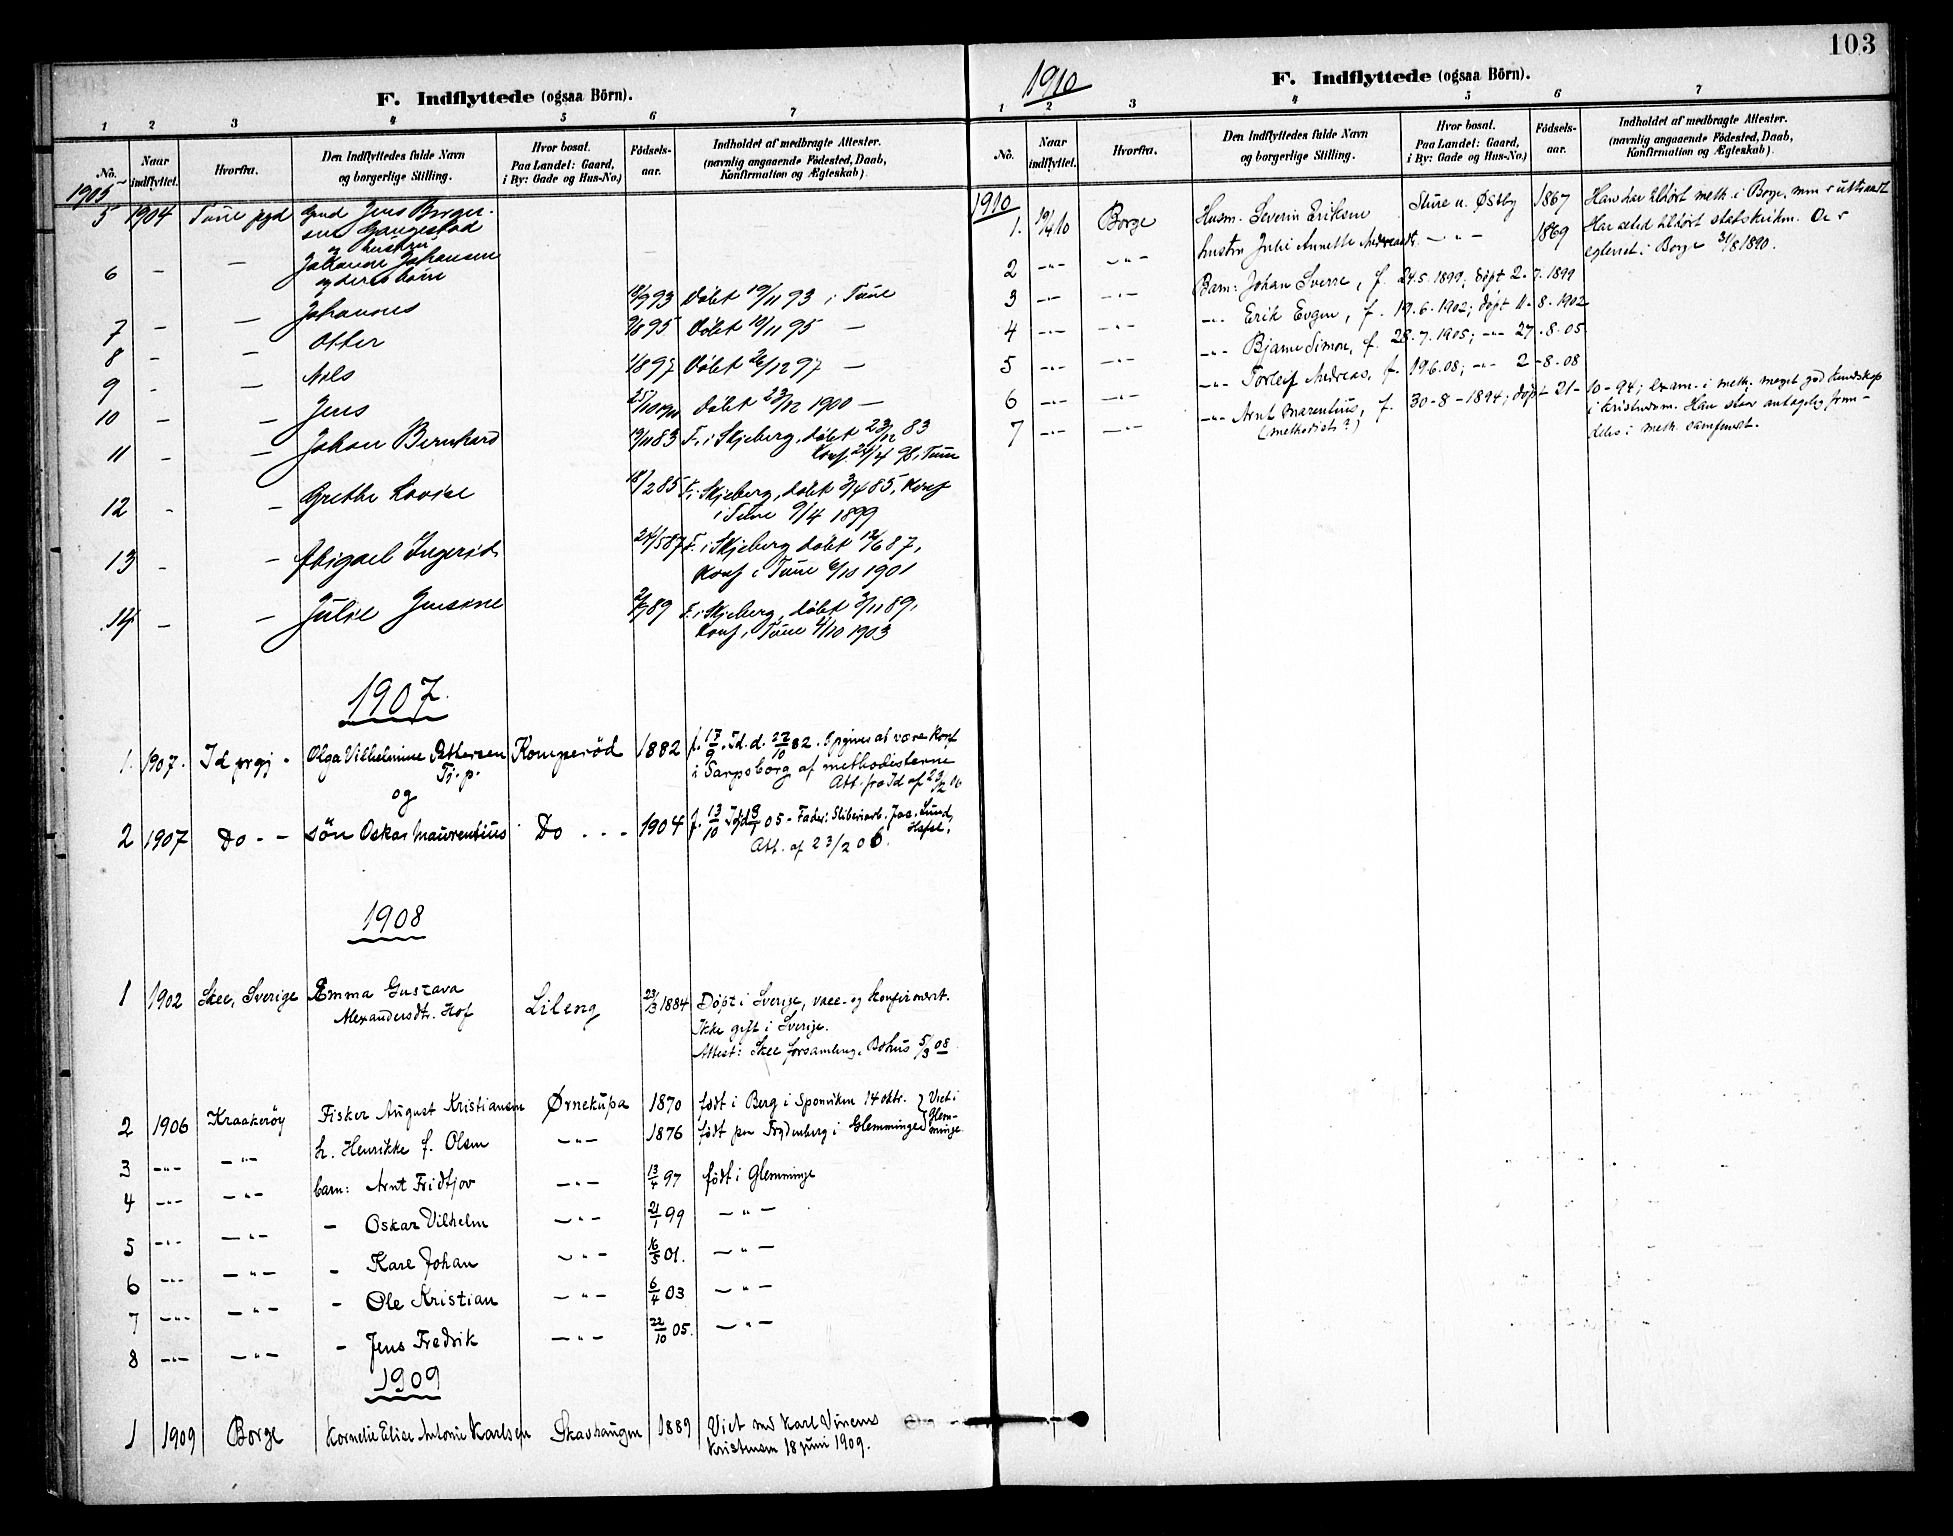 F. Indflyttede (ogsaa Börn).
1 2 3 4 5 6 7
No. Naar indflyttet. Hvorfra. Den Indflyttedes fulde Navn og borgerlige Stilling. Hvor bosat. Paa Landet: Gaard, i By: Gade og Hus-No.) Fødsels-aar. Indholdet af medbragte Attester. (navnlig angaaende Fødested, Daab, Konfirmation og Ægteskab).
1905
5 1904 Tune pgd Gmd Jens Borger-
sen Gangestad
og hustru
6 — — Johanne Johansen
og deres børn
7 — — Johannes 93 Døbt 19/11 93 i Tune
8 — — Otter 9/8 95 Døbt 10/11 95 —
9 — — Nils 1/8 97 Døbt 26/12 97 —
10 — — Jens 25/10 1900 Døbt 23/12 1900 —
11 — — Johan Bernhard 19/11 83 F. i Skjeberg, døbt 23/12 83
Konf. 24/4 98 i Tune
12 — — Grethe Lovise 18/2 85 F. i Skjeberg, døbt 3/4 85, Konf
i Tune 9/4 1899
13 — — Abigael Ingerid 24/5 87 F. i Skjeberg døbt 12/6 87,
Konf i Tune 6/10 1901
14 — — Julie Jensine 89 F. i Skjeberg, døbt 3/11 89,
Konf. i Tune 4/10 1903
1907.
1. 1907. Id prgj. Olga Vilhelmine Pettersen Komperød 1882 f. 17/9. Id. d. 22/10 82. Opgives at være konf
Tj. p. i Sarpsborg af methodisterne
og Att. fra Id af 23/2 06
2 1907 Do - - søn Oskar Maurentius Do . . - 1904 f. 13/10 05 - Fader: Sliberiarb. Lund,
Att. af 23/2 06.
1908
1 1902 Skee, Sverige Emma Gustava Lileng 23/3 1884 Døpt i Sverige, vacc. og konfirmert.
Alexandersdtr. Hof Ikke gift i Sverige.
Attest: Skee forsamling, Bohus 5/3 08
2 1906 Kraakerøy Fisker August Kristiansen Ørnekupa 1870 født i Berg i Sponviken 14 oktr. } Viet i
3 -"- -"- h. Henrikke f. Olsen -"- 1876 født paa Frydenberg i Glemminge } Glem-minge
4 -"- -"- barn: Arnt Fridtjov -"- 13/4 97 født i Glemminge
5 -"- -"- - Oskar Vilhelm -"- 21/1 99 -"-
6 -"- -"- - Kare Johan -"- 16/5 01. -"-
7 -"- -"- - Ole Kristian -"- 6/4 03 -"-
8 -"- -"- - Jens Fredrik -"- 22/10 05. -"-
1909
1 1909 Borge Kornelie Elise Antonie Karlsen Skavhaugen 1889 Viet md Karl Vincens
Kristensen 18 juni 1909.
103
1910
F. Indflyttede (ogsaa Börn).
1 2 3 4 5 6 7
No. Naar indflyttet. Hvorfra. Den Indflyttedes fulde Navn og borgerlige Stilling. Hvor bosat. Paa Landet: Gaard, i By: Gade og Hus-No.) Fødsels-aar. Indholdet af medbragte Attester. (navnlig angaaende Fødested, Daab, Konfirmation og Ægteskab).
1910
1. 19/4 10 Borge Husm. Severin Eriksen Sture u. Østby 1867 Han har tilhørt meth. i Borge, men r uttraadt
2 -"- -"- hustru Julie Annette Andreasdt. -"- 1869 Har altid tilhørt statskirkn. De r
egteviet i Borge 31/8 1890.
3 -"- -"- Barn: Johan Sverre, f. 24.5.1899; døpt 2.7.1899
4 -"- -"- -"- Erik Evgen, f. 19.6.1902; døpt 11-8-1902
5 -"- -"- -"- Bjarne Simon, f. 28.7.1905; -"- 27-8-05
6 -"- -"- -"- Torleif Andreas, f. 19.6.08; -"- 2-8-08
7 -"- -"- -"- Arnt Marentius, f. 30-8-1894; døpt 21-10-94; exam. i meth. meget god kundskap
(methodist?) i kristendom. Han staar antagelig frem-
deles i meth. samfundet.